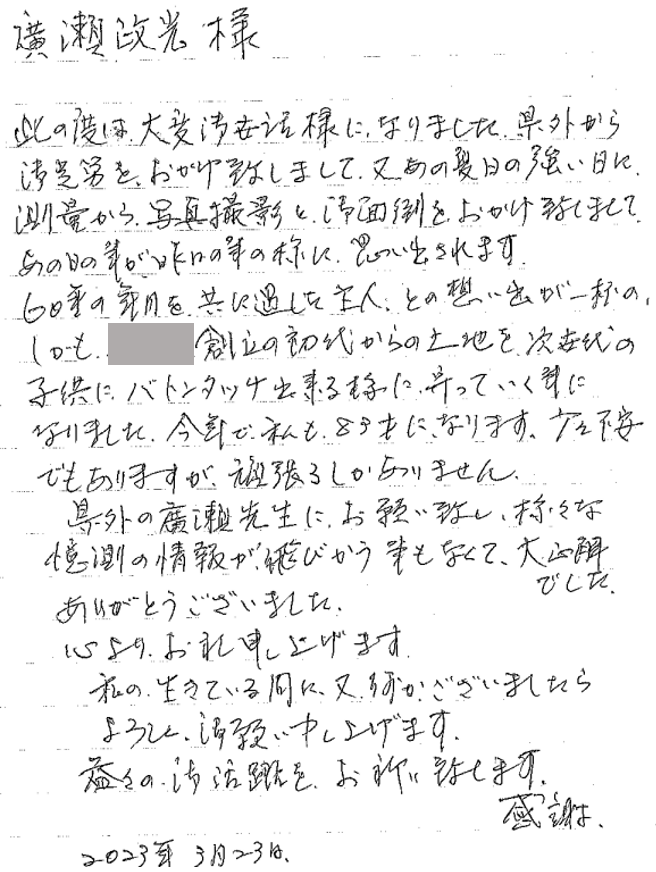 廣瀬政光 様
此の度は、大変御世話様に、なりました。県外から
御足労を、おかけ致しまして、又あの夏日の強い日に、
測量から、写真撮影と、御面倒を、おかけ致しまして、
あの日の事が昨日の事の様に、思い出されます。
60年の年月を、共に過した主人、との想い出が一杯の、
しかも、 創立の初代からの土地を、次世代の
子供に、バトンタッチ出来る様に、昇っていく事に
なりました。今年で、私も、83才に、なります。 不安
でもありますが、頑張るしかありません。
県外の廣瀬先生に、お願い致し、様々な
憶測の情報が、飛びかう事もなくて、大正解
でした。
ありがとうございました。
心より、お礼申し上げます。
私の、生きている間に、又、何か、ございましたら
よろしく、御願い申し上げます。
益々の、御活躍を、お祈り致します。
感謝。
2023年 3月23日、